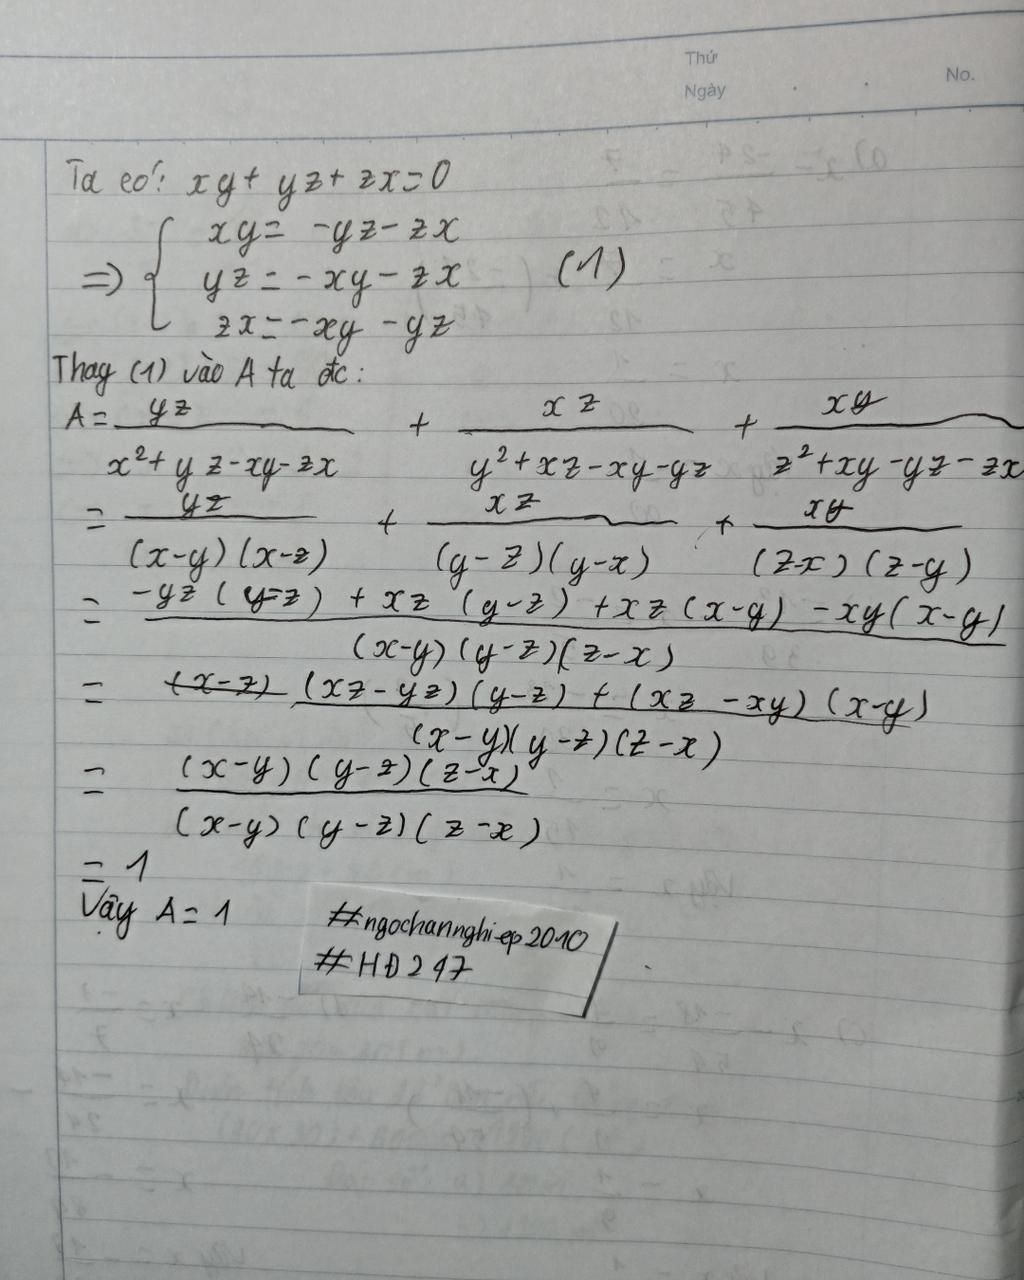 Thứ
Ngày
No.
Ta có: xy + yz + zx = 0
=> { xy = -yz - zx
yz = -xy - zx (1)
zx = -xy - yz
Thay (1) vào A ta đc:
A = yz / (x² + yz - xy - zx) + xz / (y² + xz - xy - yz) + xy / (z² + xy - yz - zx)
= yz / (x-y)(x-z) + xz / (y-z)(y-x) + xy / (z-x)(z-y)
= -yz(y-z) + xz(y-z) + xz(x-y) - xy(x-y) / (x-y)(y-z)(z-x)
= (xz - yz)(y-z) + (xz - xy)(x-y) / (x-y)(y-z)(z-x)
= (x-y)(y-z)(z-x) / (x-y)(y-z)(z-x)
= 1
Vậy A = 1
#ngochannghiep2010
#HĐ247